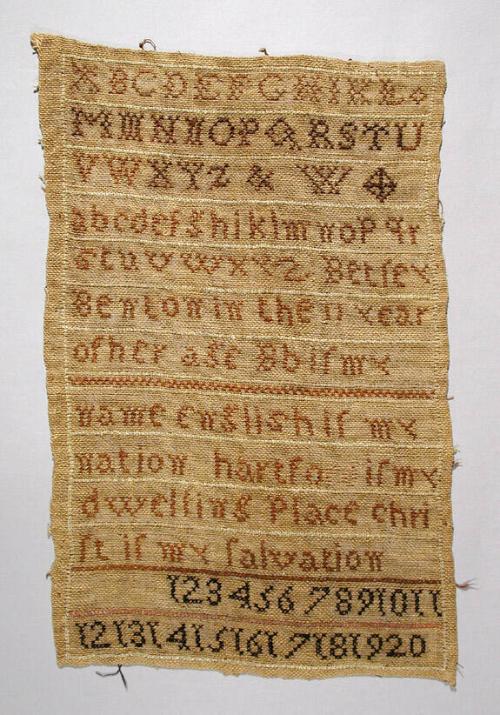 ABCDEFGHIKL
MNNOPQRSTU
VWXYZ & W
abcdefghiklmnopqr
stuvwxyz Betsey
Benton in the 11 year
of her age Bb iſ my
name engliſh iſ my
nation hartfo iſ my
dwelling place chri
ſt iſ my ſalvation
1234567891011
121314151617181920